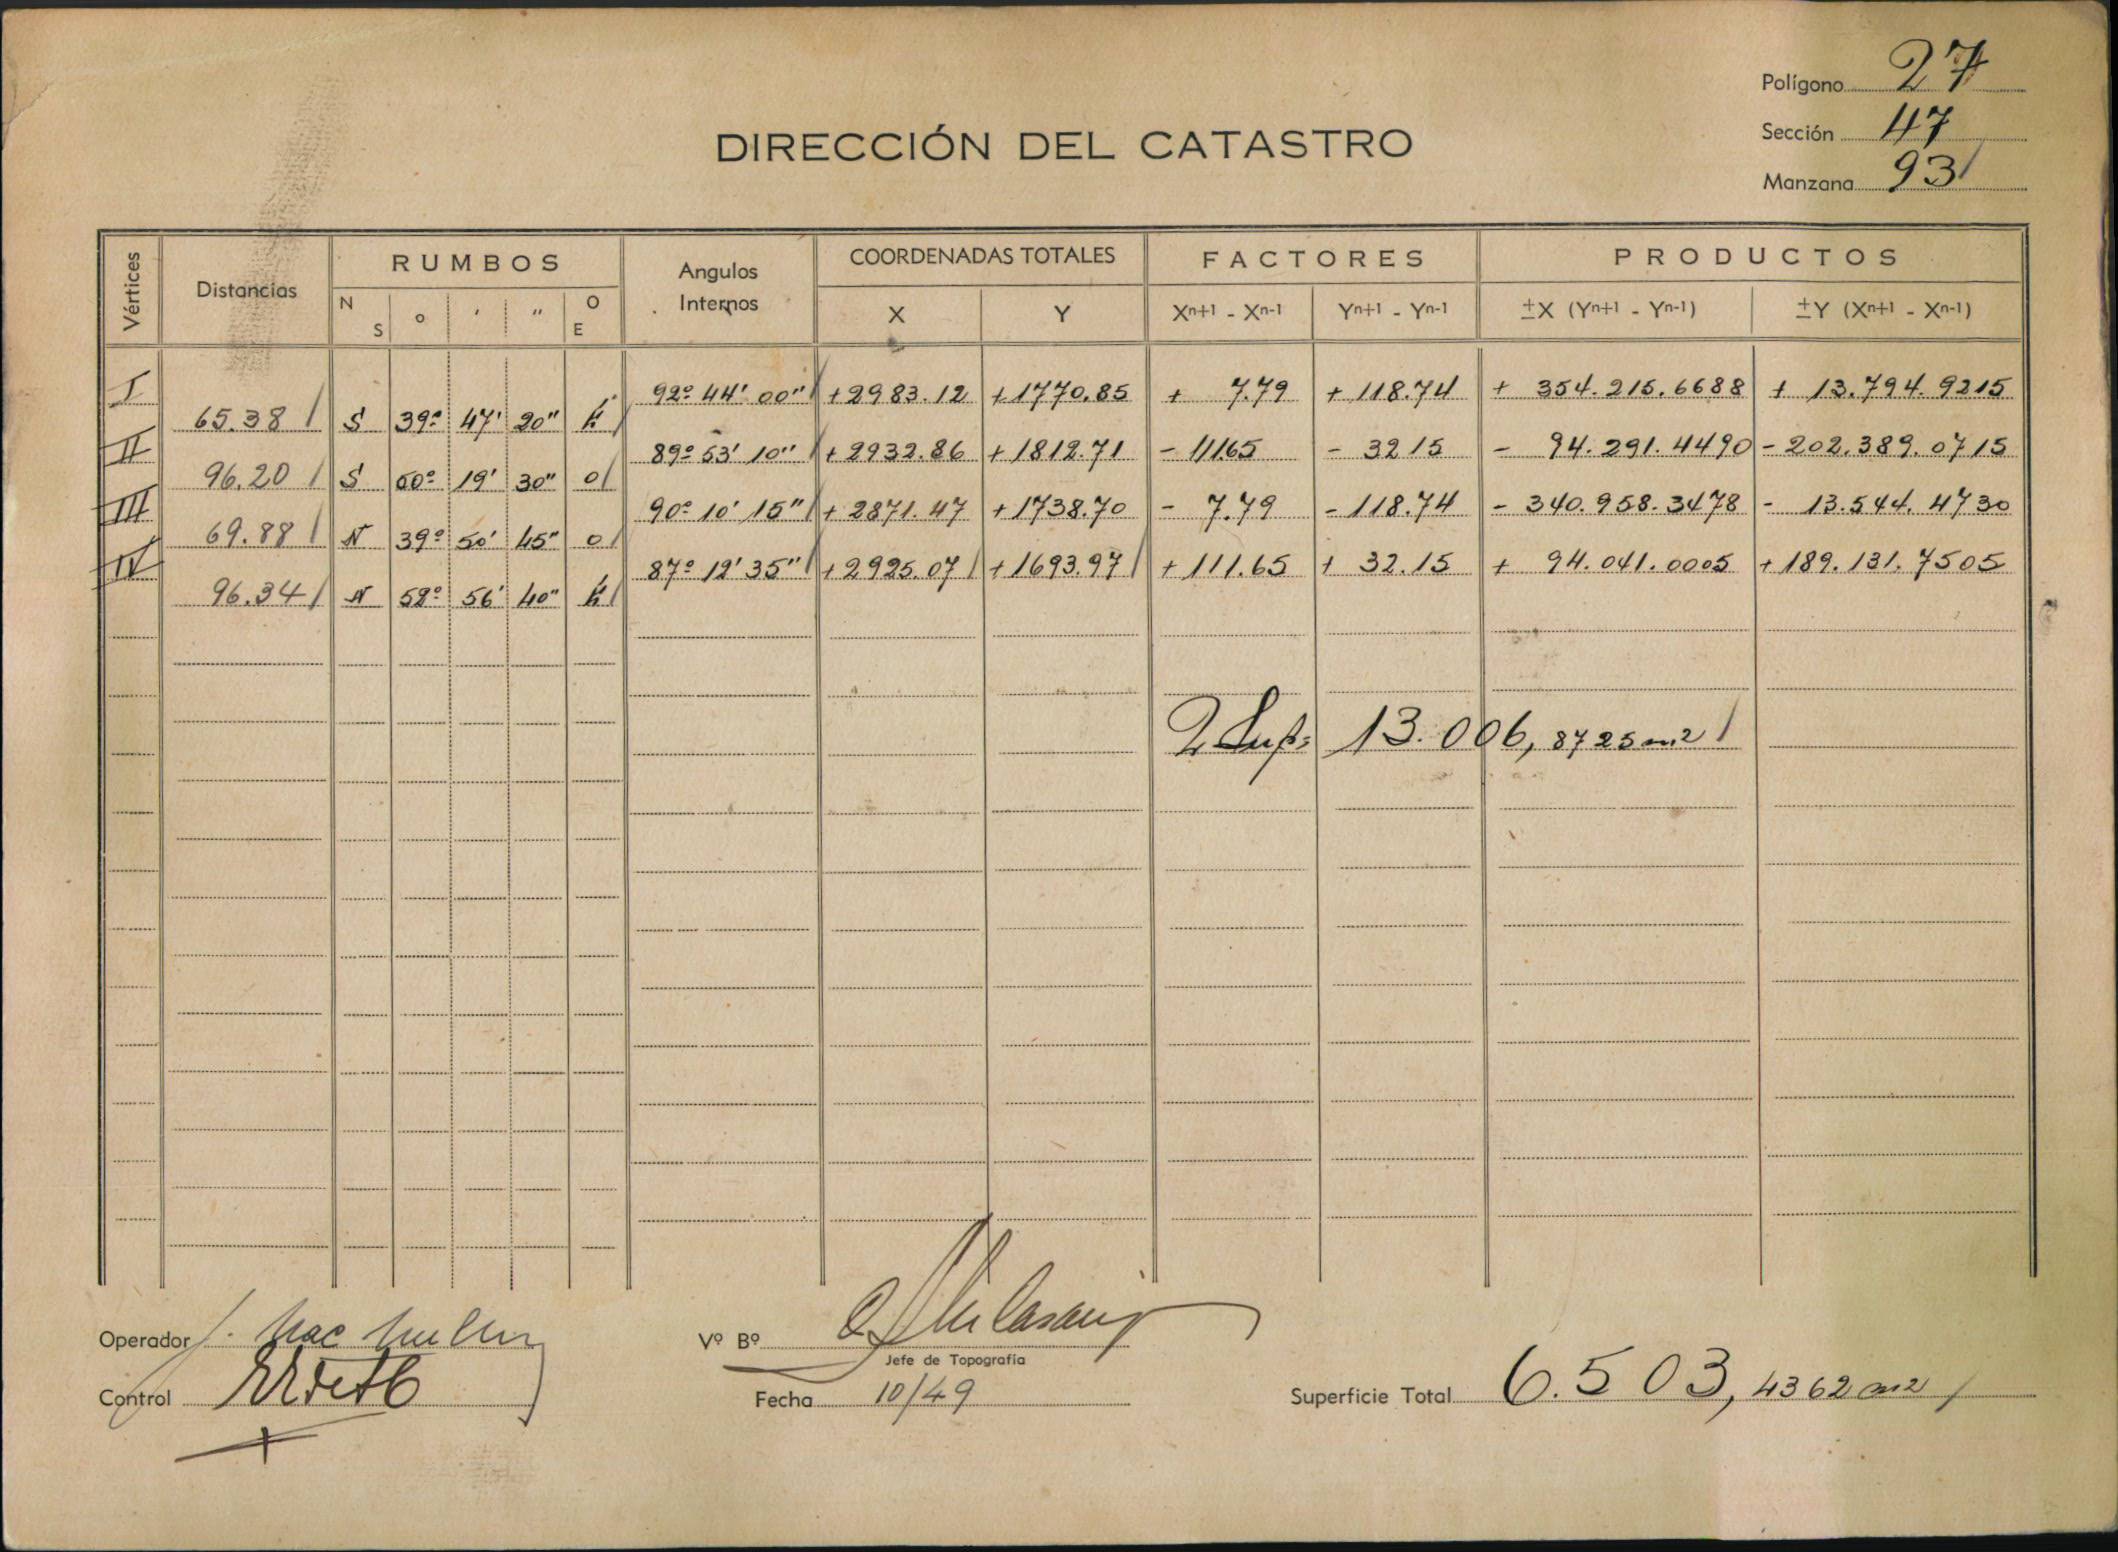 Polígono 27
Sección 47
Manzana 93
DIRECCIÓN DEL CATASTRO
Vértices Distancias RUMBOS Angulos Internos COORDENADAS TOTALES FACTORES PRODUCTOS
N S o ' " O E X Y Xn+1 - Xn-1 Yn+1 - Yn-1 ±X (Yn+1 - Yn-1) ±Y (Xn+1 - Xn-1)
I 92º 44' 00" +2983.12 +1770.85 + 7.79 + 118.74 + 354.215.6688 + 13.794.9215
65.38 S 39º 47' 20" E
II 89º 53' 10" +2932.86 +1812.71 - 111.65 - 32.15 - 94.291.4490 - 202.389.0715
96.20 S 50º 19' 30" O
III 90º 10' 15" +2871.47 +1738.70 - 7.79 - 118.74 - 340.958.3478 - 13.544.4730
69.88 N 39º 50' 45" O
IV 87º 12' 35" +2925.07 +1693.97 + 111.65 + 32.15 + 94.041.0005 + 189.131.7505
96.34 N 52º 56' 40" E
2 Sup= 13.006,8725 m2
Operador J. Mac
Vº Bº
Jefe de Topografía
Control
Fecha 10/49
Superficie Total 6.503,4362 m2